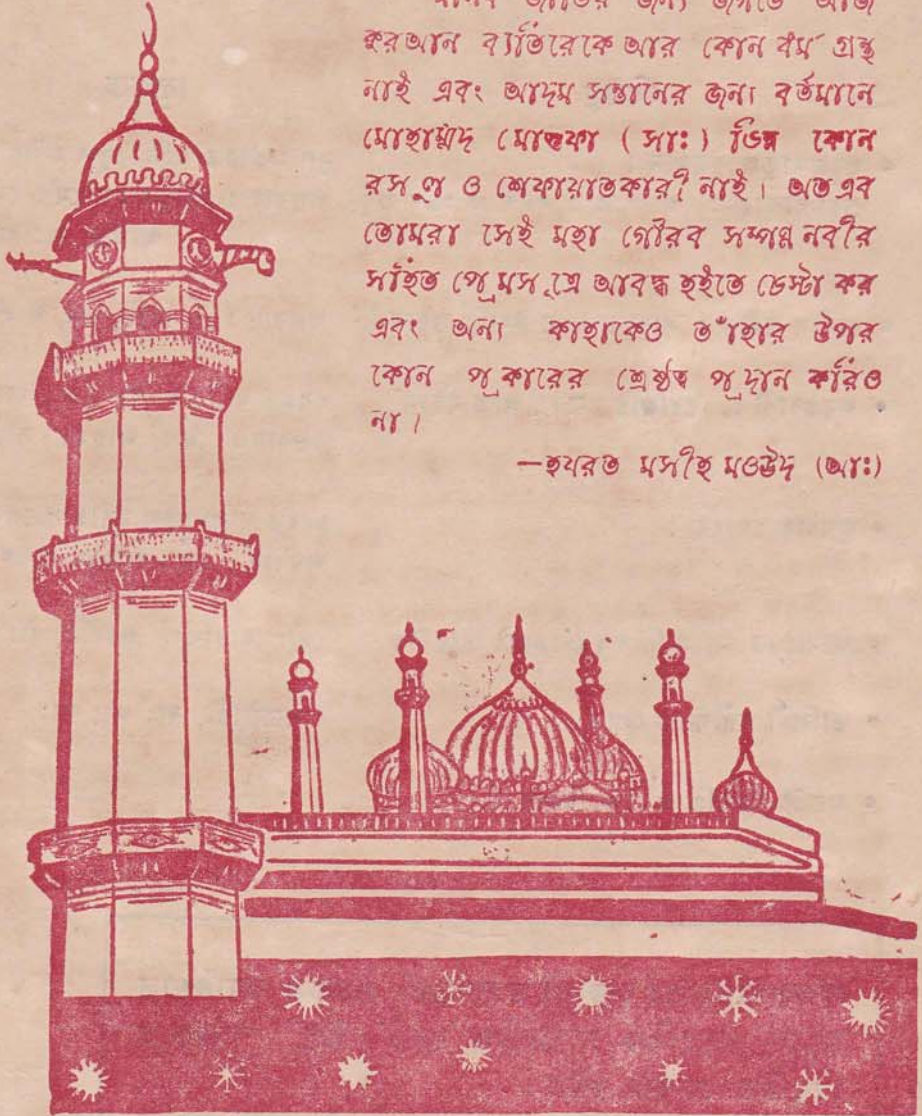 মানব জাতির জন্য জগতে আজ
কুরআন ব্যতিরেকে আর কোন ধর্ম গ্রন্থ
নাই এবং আদম সন্তানের জন্য বর্তমানে
মোহাম্মাদ মোস্তফা ( সাঃ ) ভিন্ন কোন
রসূল ও শেফায়াতকারী নাই। অতএব
তোমরা সেই মহা গৌরব সম্পন্ন নবীর
সহিত প্রেমসূত্রে আবদ্ধ হইতে চেস্টা কর
এবং অন্য কাহাকেও তাঁহার উপর
কোন প্রকারের শ্রেষ্ঠত্ব প্রদান করিও
না।
—হযরত মসীহ মওউদ (আঃ)